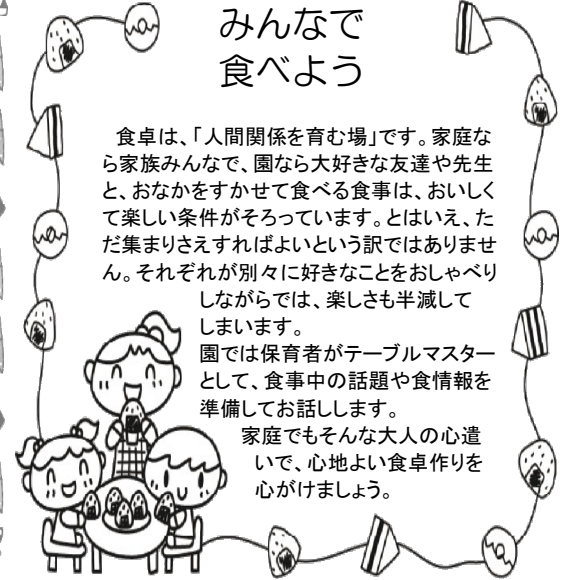 みんなで
食べよう
食卓は、「人間関係を育む場」です。家庭な
ら家族みんなで、園なら大好きな友達や先生
と、おなかをすかせて食べる食事は、おいしく
て楽しい条件がそろっています。とはいえ、た
だ集まりさえすればよいという訳ではありませ
ん。それぞれが別々に好きなことをおしゃべり
しながらでは、楽しさも半減して
しまいます。
園では保育者がテーブルマスター
として、食事中の話題や食情報を
準備してお話しします。
家庭でもそんな大人の心遣
いで、心地よい食卓作りを
心がけましょう。